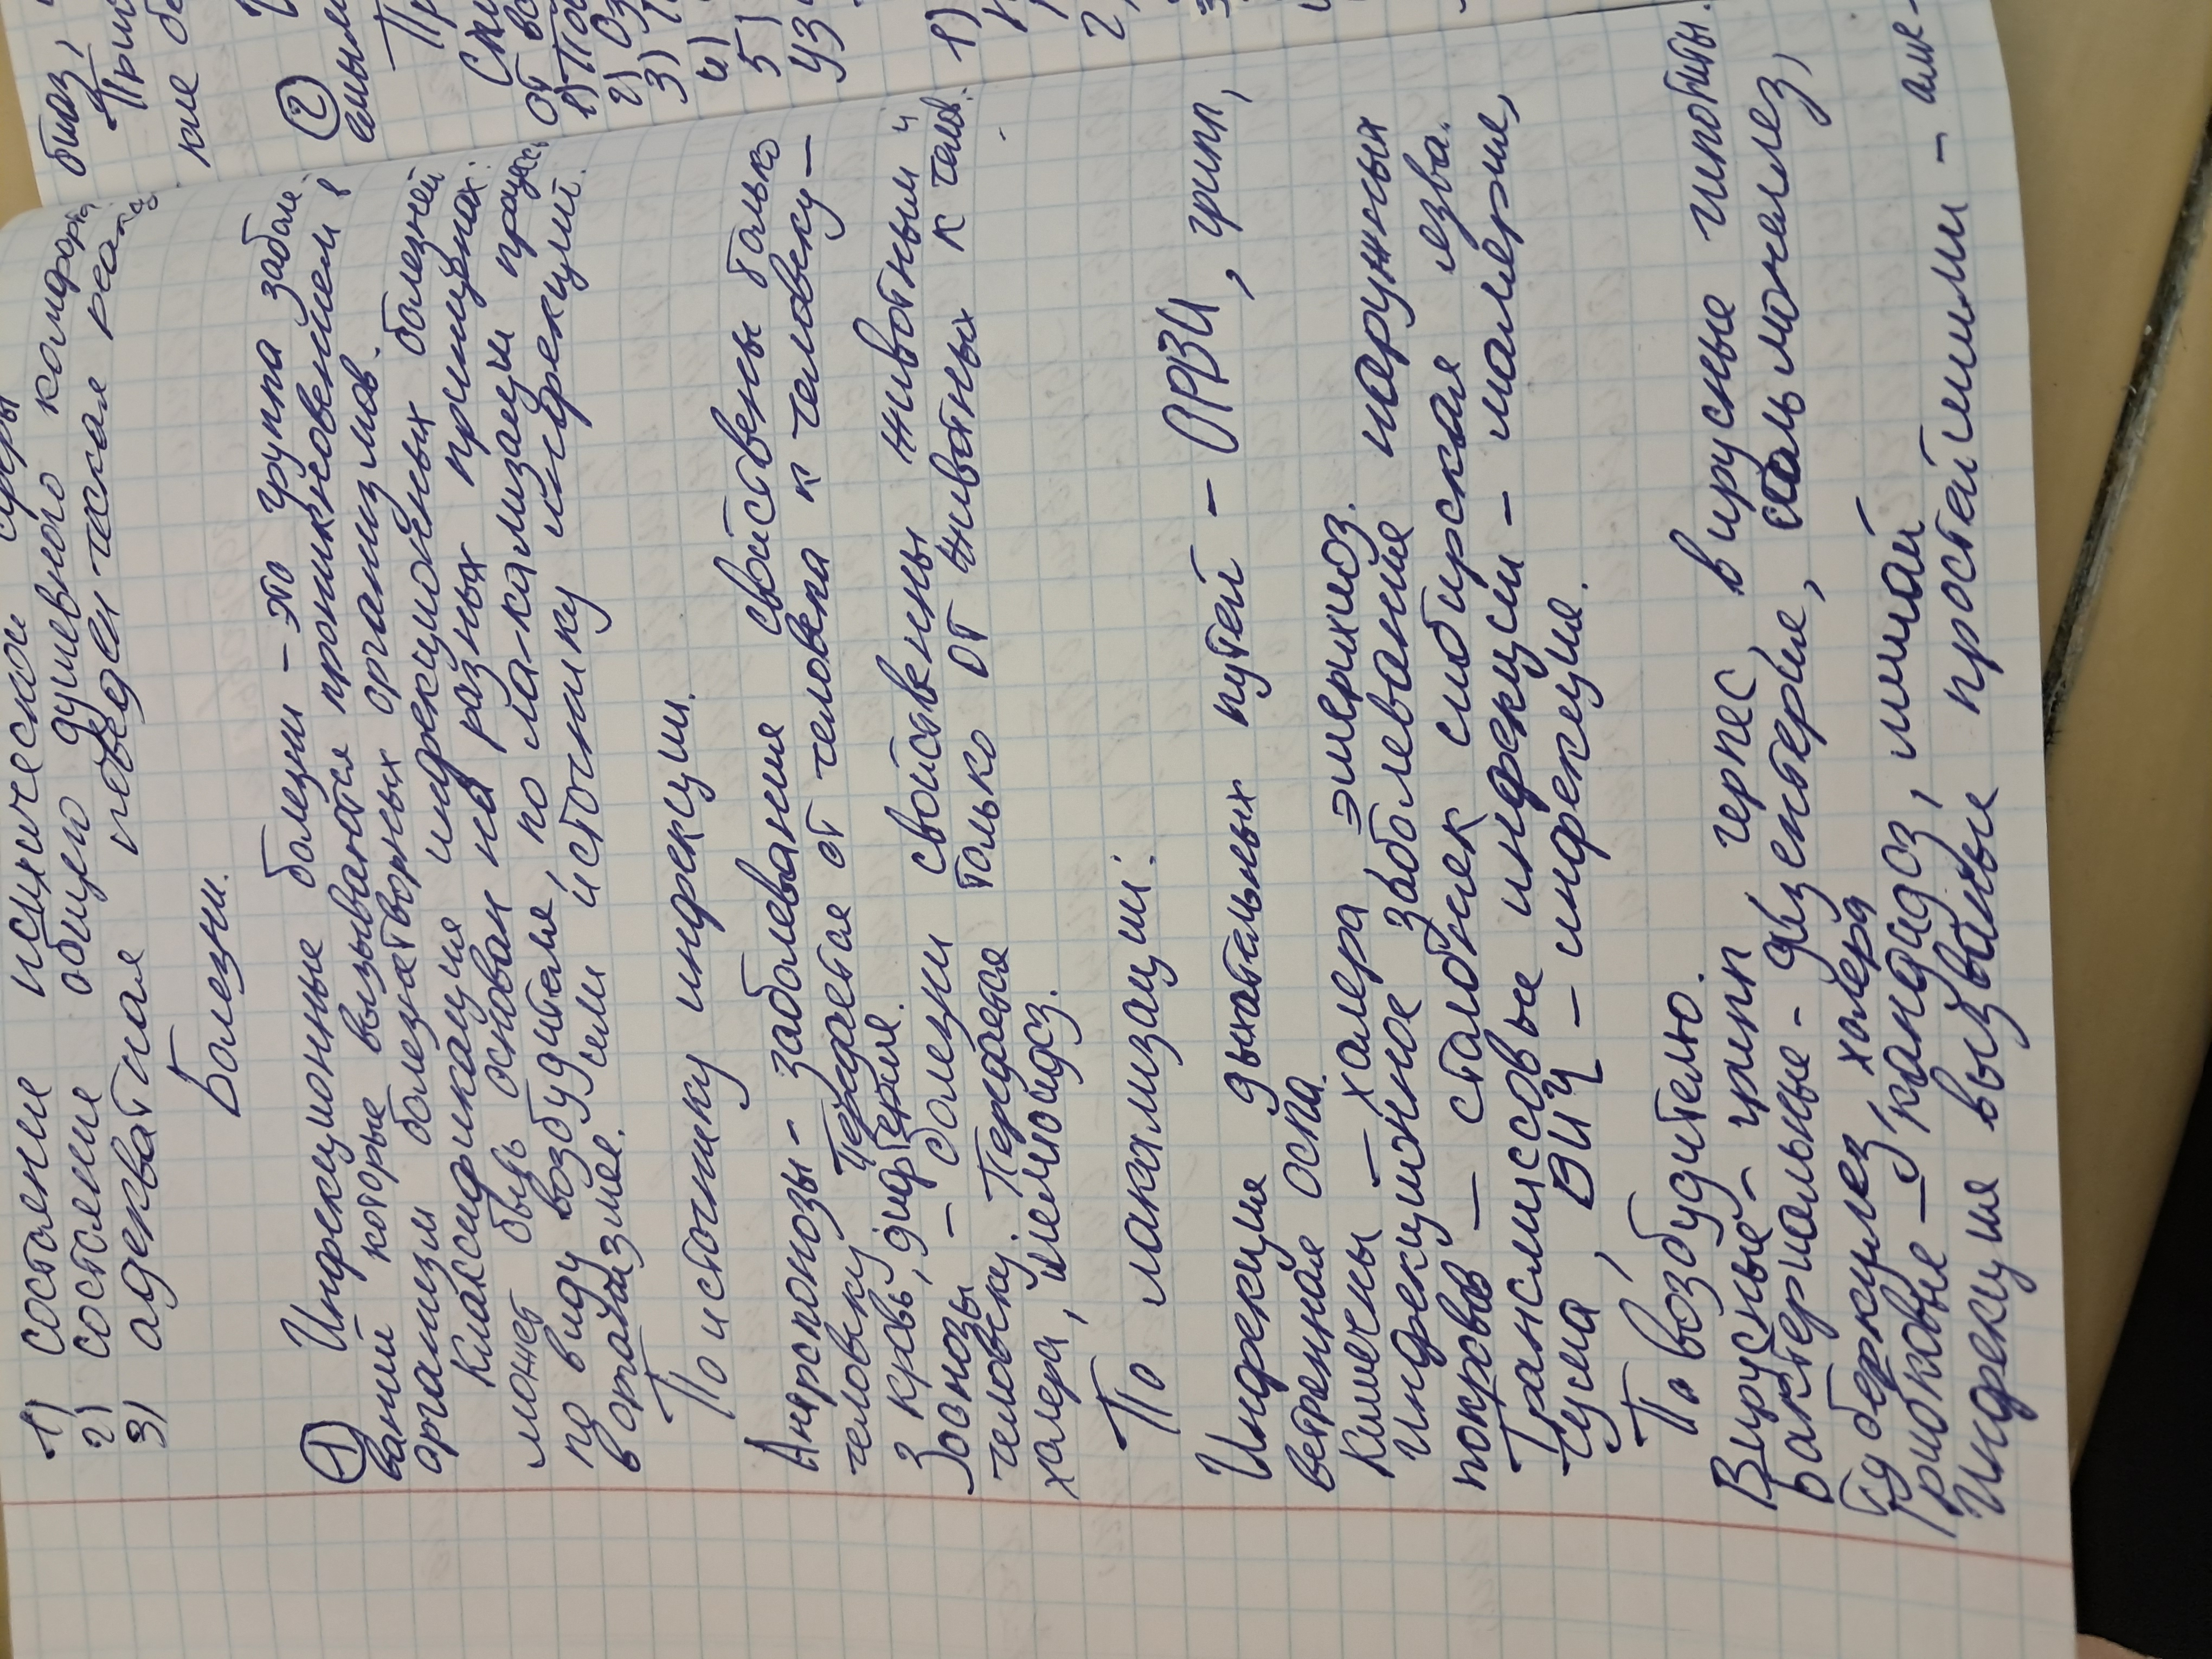 1) состояни психической сферы
2) состояние общего душевного комфорта
3) адекватная поведенческая реакц
Болезни.
① Инфекционные болезни - это группа заболе-
ваний которые вызываются проникновением в
организм болезнетворных организмов.
Классификация инфекционных болезней
может быть основан на разных принципах:
по виду возбудителя, по ла-кализации процесс
в организме. или источнику инфекции.
По источнику инфекции.
Антропонозы - заболевания свойственны только
человеку. Передаётся от человека к человеку -
кровь, дифтерия.
Зоонозы - болезни свойственны животным и
человеку. Передаеться только от животных к челов.
халера,
По локализации:
Инфекция дыхательных путей - ОРВЗИ, грипп,
ветренная оспа.
Кишечны - халера эшерихиоз.
Инфекционное заболевание наружных
покровов - столбняк сибирская язва.
Трансмиссовые инфекции - малярие,
чума, ВИЧ - инфекция.
По возбудителю.
Вирусные - грипп герпес, вирусные гипотиты.
Бактериальные - дизентерие, сальмонелез,
туберкулез, холера
Грибковые - кандидоз, лишай
Инфекция вызваные простейшими - аме-
биаз,
②
1)
2)
3)
4)
5)
УЗ
1)
2,